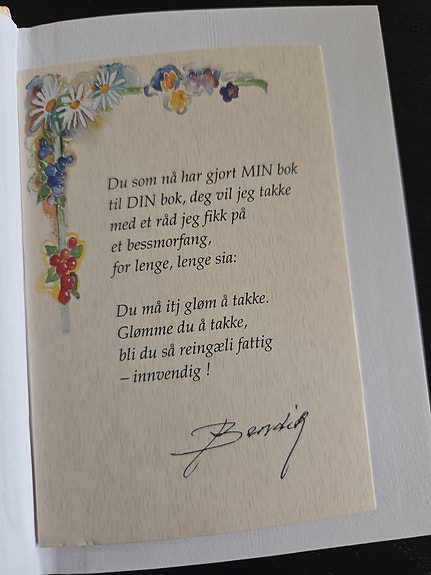 Du som nå har gjort MIN bok
til DIN bok, deg vil jeg takke
med et råd jeg fikk på
et bessmorfang,
for lenge, lenge sia:
Du må itj gløm å takke.
Glømme du å takke,
bli du så reingæli fattig
– innvendig !
Bendik